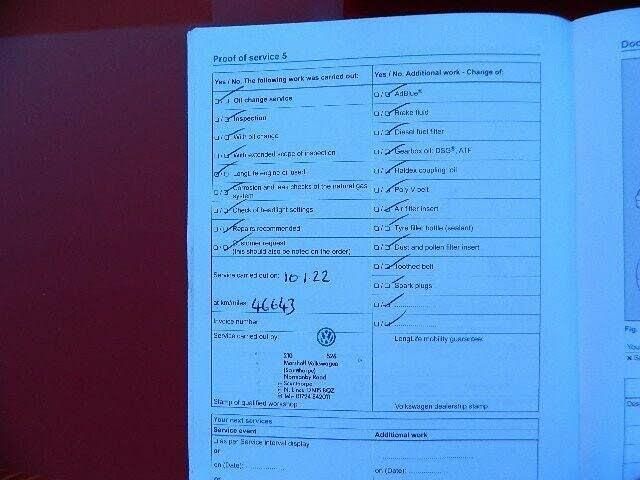 Proof of service 5
Doc
Yes / No. The following work was carried out:
Yes / No. Additional work - Change of:
Oil change service
AdBlue®
Inspection
Brake fluid
With oil change
Diesel fuel filter
With extended scope of inspection
Gearbox oil: DSG®, ATF
LongLife engine oil used
Haldex coupling: oil
Corrosion and leak checks of the natural gas
system
Poly V-belt
Check of headlight settings
Air filter insert
Repairs recommended
Tyre filler bottle (sealant)
Customer request
(this should also be noted on the order)
Dust and pollen filter insert
Toothed belt
Service carried out on: 10.1.22
Spark plugs
at km/miles: 46643
Invoice number
Service carried out by:
LongLife mobility guarantee:
Fig.
You
Marshall Volkswagen
(Scunthorpe)
Normanby Road
Scunthorpe
N. Lincs DN15 8QZ
Tele 01724 842011
Stamp of qualified workshop
Volkswagen dealership stamp
Des
Your next services
Service event
Additional work
as per Service interval display
or
on (Date):
on (Date):
or
or